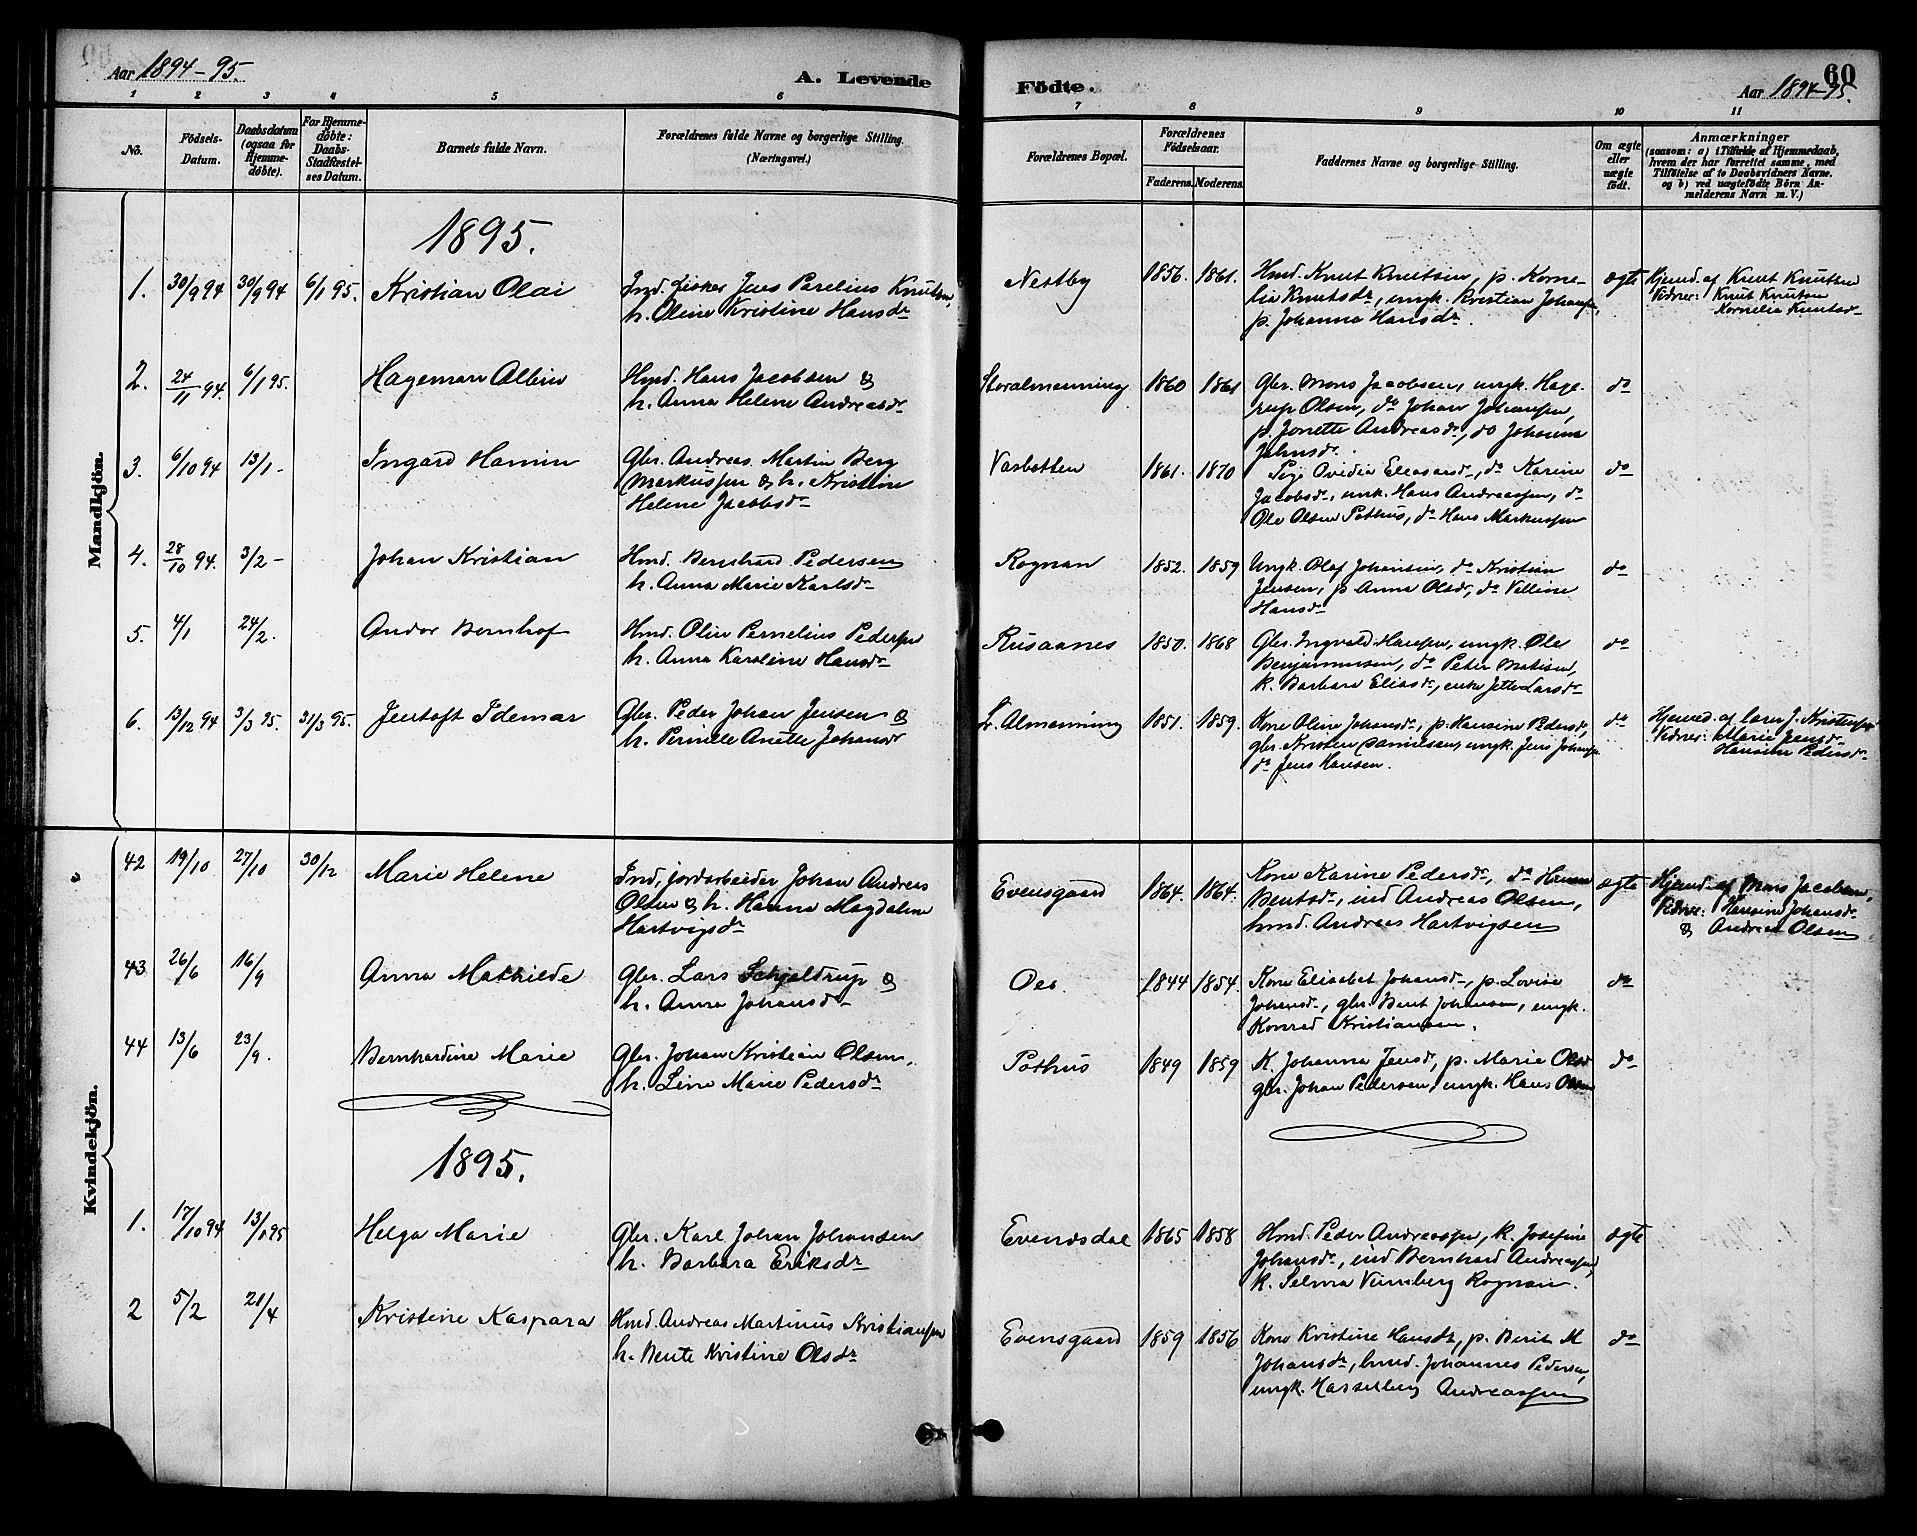 Aar 1894-95.
A. Levende
Födte.
60
Aar 1894-95.
1 2 3 4 5 6 7 8 9 10 11
No.
Födsels-Datum.
Daabsdatum (ogsaa for Hjemmedöbte).
For Hjemmedöbte: Daabs-Stadfæstelses Datum.
Barnets fulde Navn.
Forældrenes fulde Navne og borgerlige Stilling. (Næringsvei.)
Forældrenes Bopæl.
Forældrenes Födselsaar.
Faderens. Moderens.
Faddernes Navne og borgerlige Stilling.
Om ægte eller uægte födt.
Anmærkninger
(saasom: a) i Tilfælde af Hjemmedaab,
hvem der har forrettet samme, med
Tilföielse af to Daabsvidners Navne.
og b) ved uægtefödte Börn An-
melderens Navn m. V.)
Mandkjön.
1895.
1. 30/9 94 30/9 94 6/1 95. Kristian Olai
Ind. Fisker Jens Parelius Knutsen,
h. Oline Kristine Hansdr
Nestby 1856. 1861.
Hmd. Knut Knutsen, p. Korne-
lia Knutsdr, ungk. Kristian Johansen,
p. Johanna Hansdr.
ægte
Hjemd. af Knut Knutsen
Vidner: Knut Knutsen
Kornelia Knutsd
2. 24/11 94. 6/1 95. Hageman Albin
Hmd. Hans Jacobsen &
h. Anna Helene Andreasdr
Storalmenning 1860 1861
Gbr. Mons Jacobsen, ungk. Hage-
rup Olsen, do Johan Johansen,
p. Jonette Andreasdr, do Johanna
Johnsdr.
do
3. 6/10 94 13/1 - Ingard Hamin
Gbr. Andreas Martin Berg
Markussen & h. Kristine
Helene Jacobsdr
Vasbotten 1861. 1870
Pige Ovidia Eleasardr, do Karine
Jacobsdr, unk. Hans Andreassen, do
Ole Olsen Pothus, do Hans Markussen
do
4. 28/10 94. 3/2 - Johan Kristian
Hmd. Bernhard Pedersen
h. Anna Marie Karlsdr
Rognan 1852. 1859
Ungk. Olaf Johansen, do Kristian
Jensen, p Anna Olsdr, do Velline
Hansdr
do
5. 4/1 24/2. Andor Bernhof
Hmd. Olin Pernelius Pedersen
h. Anna Karoline Hansdr
Rusaanes 1850. 1868
Gbr. Ingvald Hansen, ungk. Ole
Benjaminsen, do Peter Matisen,
k. Barbara Eliasdr, enke Jette Larsdr
do
6. 13/12 94 3/3 95. 31/3 95. Jentoft Idemar
Gbr. Peder Johan Jensen &
h. Pernille Anette Johansdr
L. Almenning 1851. 1859.
Kone Oline Johansdr, p. Hansine Pedersdr,
gbr. Kristen Danielsen, ungk. Jens Johansen
do Jens Hansen.
do
Hjemd. af lærer J. Kristensen
Vidner: Marie Jensdr
Hansine Pedersdr
Kvindekjön.
42 19/10 27/10 30/12 Marie Helene
Ind, jordarbeider Johan Andreas
Olsen & h. Hanna Magdalene
Hartvigsdr
Evensgaard 1864. 1864.
Kone Karine Pedersdr, do Hanna
Bentsdr, ind Andreas Olsen,
hmd. Andreas Hartvigsen
ægte
Hjemd. af Mons Jacobsen,
Vidner: Hansine Johansdr
& Andreas Olsen
43 26/6 16/9 Anna Mathilde
Gbr. Lars Schjeldrup &
h. Anna Johansdr
Oes. 1844 1854.
Kone Elisabet Johansdr, p. Lovise
Johansdr, gbr. Bent Johansen, ungk.
Konrad Kristiansen.
do
44 13/6 23/9. Bernhardine Marie
Gbr. Johan Kristian Olsen,
h. Line Marie Pedersdr
Pothus 1849 1859
K. Johanna Jensdr, p. Marie Olsd
gbr. Johan Pedersen, ungk. Hans Olsen
do
1895.
1. 17/10 94 13/1 95 Helga Marie
Gbr. Karl Johan Johansen
h. Barbara Eriksdr
Evensdal 1865 1858
Hmd. Peder Andreassen, k. Josefine
Johansdr, ind Bernhard Andreassen,
k. Selma Vensberg Rognan.
ægte
2 5/2 21/4 Kristine Kaspara
Hmd. Andreas Martinus Kristiansen
h. Bente Kristine Olsdr
Evensgaard 1859 1856
Kone Kristine Hansdr, p. Berit M
Johansdr, hmd. Johannes Pedersen,
ungk. Hasselberg Andreassen
do